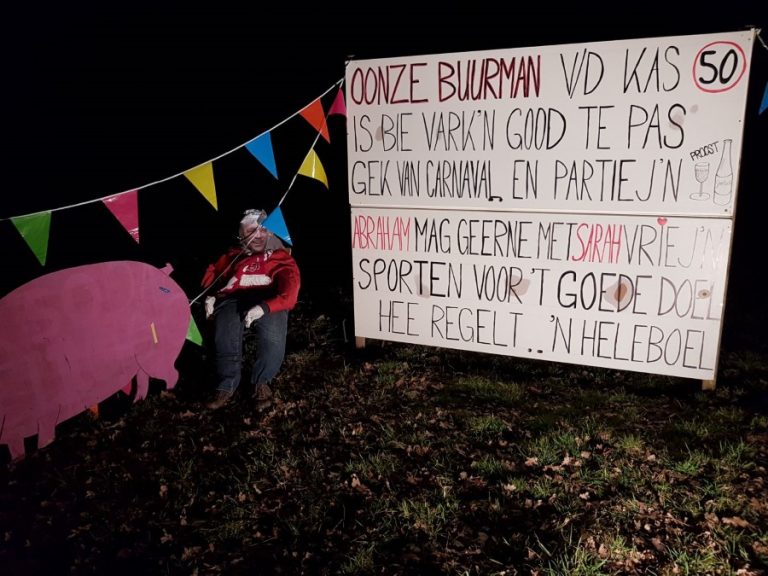 OONZE BUURMAN V/D KAS 50
IS BIE VARK'N GOOD TE PAS
GEK VAN CARNAVAL EN PARTIEJ'N
PROOST
ABRAHAM MAG GEERNE MET SARAH VRIEJ'N
SPORTEN VOOR 'T GOEDE DOEL
HEE REGELT .. 'N HELEBOEL